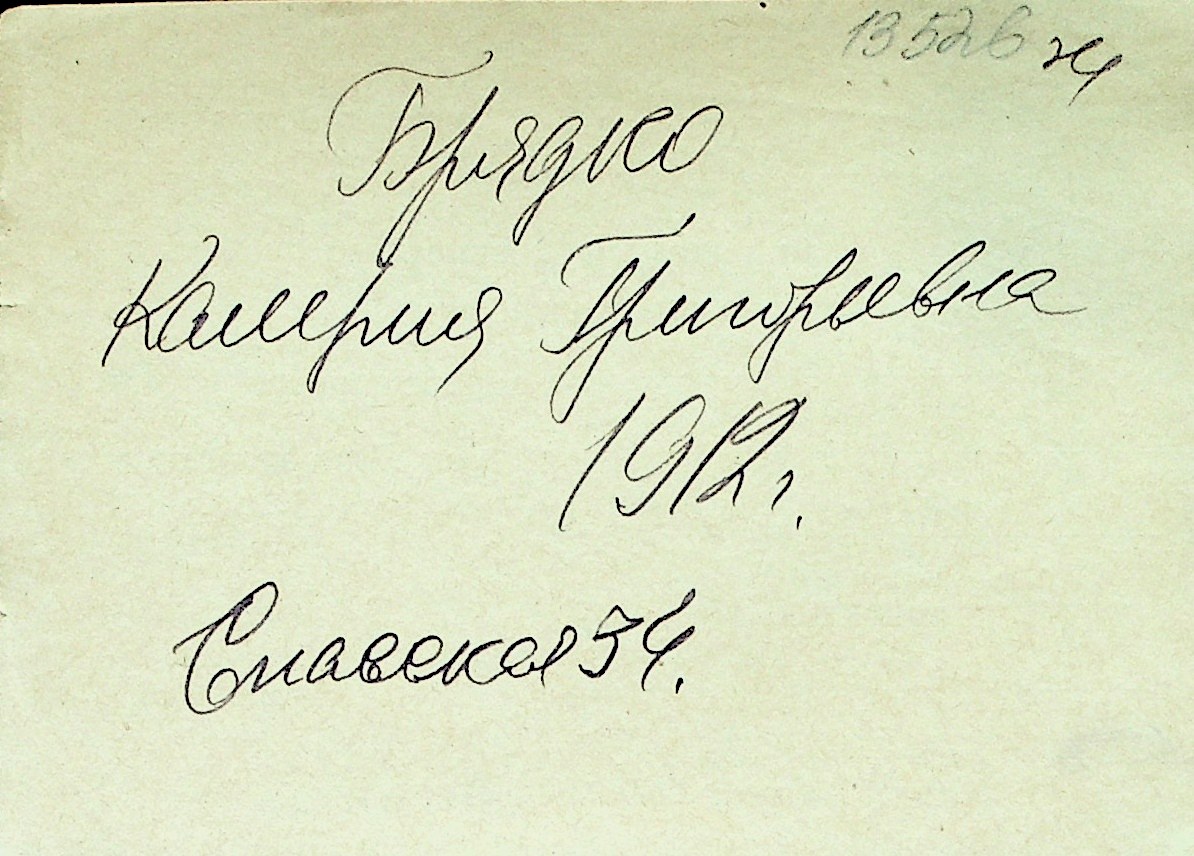 13526 ж
Брядко
Калерия Григорьевна
1912 г.
Спасская 54.